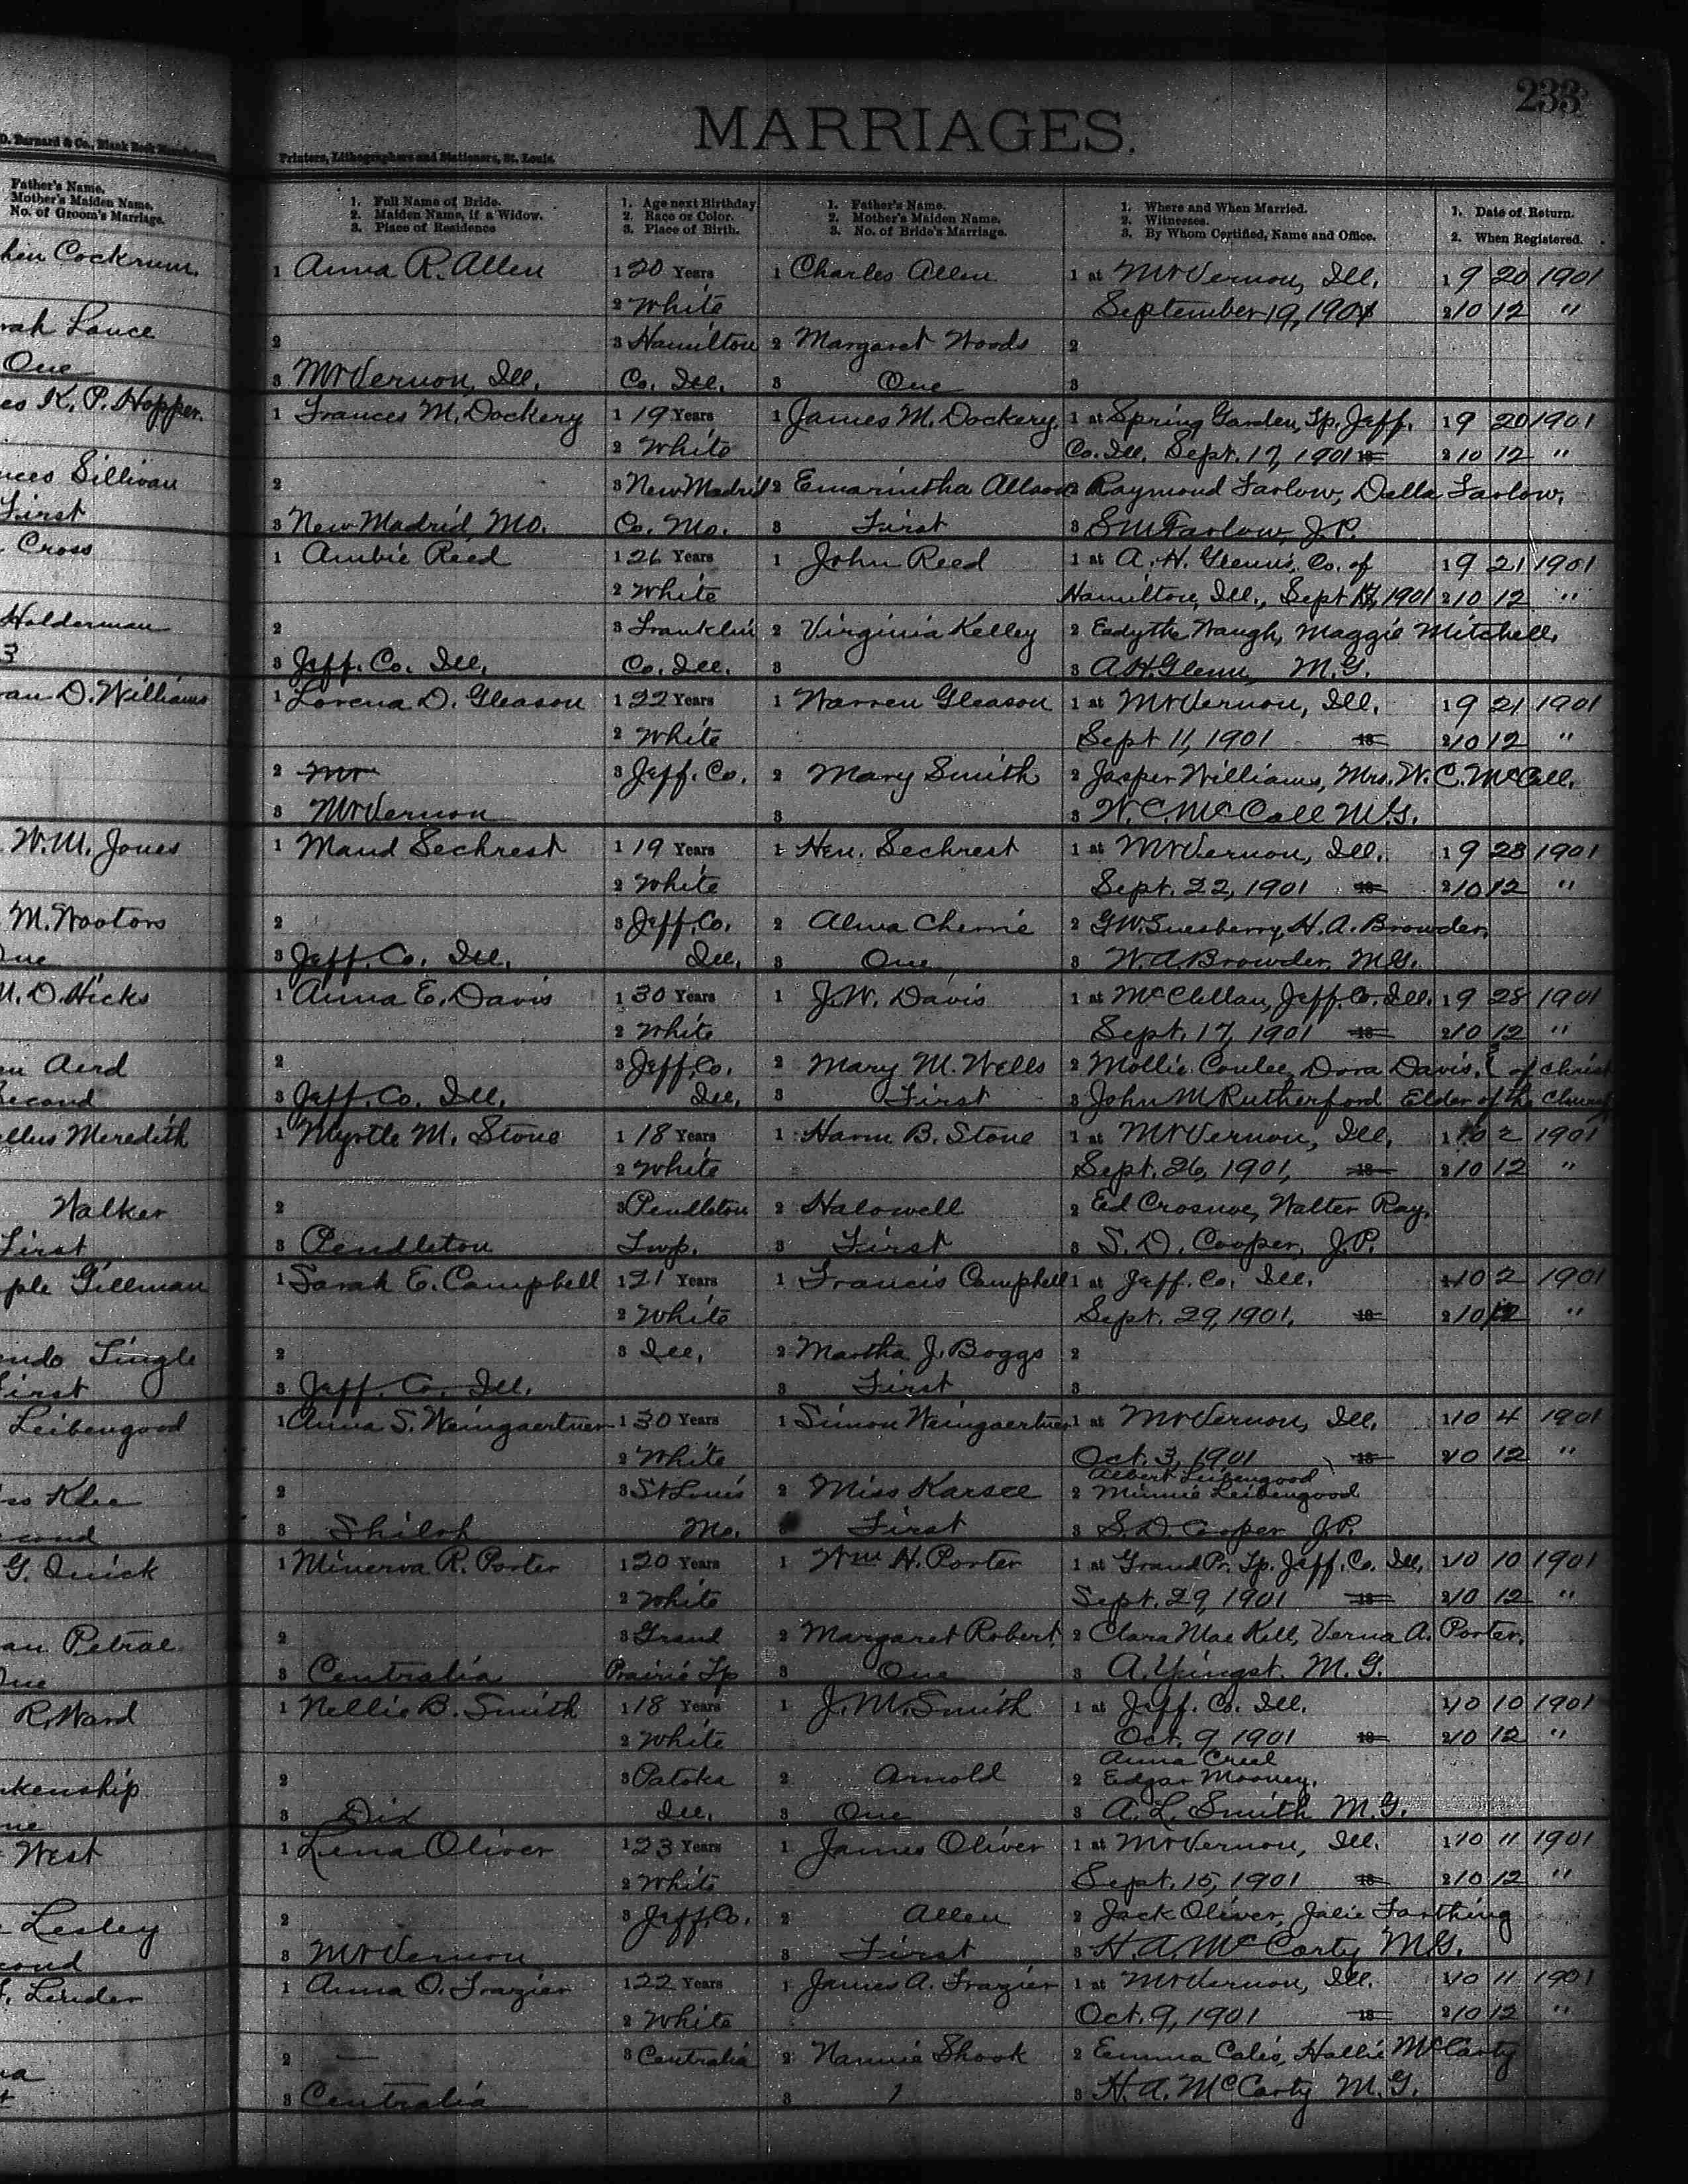 233
MARRIAGES.
D. Barnard & Co., Blank Book Manufacturers
Printers, Lithographers and Stationers, St. Louis.
Father's Name.
Mother's Maiden Name.
No. of Groom's Marriage.
1. Full Name of Bride.
2. Maiden Name, if a Widow.
3. Place of Residence
1. Age next Birthday
2. Race or Color.
3. Place of Birth.
1. Father's Name.
2. Mother's Maiden Name.
3. No. of Bride's Marriage.
1. Where and When Married.
2. Witnesses.
3. By Whom Certified, Name and Office.
1. Date of Return.
2. When Registered.
hen Cockrum 1 Anna R. Allen 1 20 Years 1 Charles Allen 1 at Mt Vernon, Ill. 1 9 20 1901
2 White September 19, 1901 2 10 12 "
rah Lance 2 3 Hamilton 2 Margaret Woods 2
One 3 Mt Vernon, Ill. Co. Ill. 3 One 3
es K. P. Hopper. 1 Frances M. Dockery 1 19 Years 1 James M. Dockery. 1 at Spring Garden, Tp. Jeff. 1 9 20 1901
2 White Co. Ill. Sept. 17, 1901 18 2 10 12 "
nces Sillivan 2 3 New Madrid 2 2 Raymond Farlow, Della Farlow,
First 3 New Madrid, Mo. Co. Mo. 3 First 3 S M Farlow, J.P.
Cross 1 Ambie Reed 1 26 Years 1 John Reed 1 at A. H. Glenn's, Co. of 1 9 21 1901
2 White Hamilton, Ill., Sept 1901 2 10 12 "
Holderman 2 3 Franklin 2 Virginia Kelley 2 Eadythe Waugh, Maggie Mitchell.
3 3 Jeff. Co. Ill. Co. Ill. 3 3 A H. Glenn M.G.
an D. Williams 1 Lorena D. Gleason 1 22 Years 1 Warren Gleason 1 at Mt Vernon, Ill. 1 9 21 1901
2 White Sept 11, 1901 18 2 10 12 "
2 Mt 3 Jeff. Co. 2 Mary Smith 2 Jasper Williams, Mrs. W. C. McCall.
3 Mt Vernon 3 3 W. C. McCall M.G.
W. M. Jones 1 Maud Sechrest 1 19 Years 1 Hen. Sechrest 1 at Mt Vernon, Ill. 1 9 28 1901
2 White Sept. 22, 1901 18 2 10 12 "
M. Wootors 2 3 Jeff. Co. 2 Alma Cherrie 2 G W. Suesberry, H. A. Browder.
One 3 Jeff. Co. Ill. Ill. 3 One 3 W. A Browder. M.G.
M. O. Hicks 1 Anna E. Davis 1 30 Years 1 J. W. Davis 1 at McClellan, Jeff. Co. Ill. 1 9 28 1901
2 White Sept. 17, 1901 18 2 10 12 "
Aerd 2 3 Jeff. Co. 2 Mary M. Wells 2 Mollie Conlee, Dora Davis. { of Christ
Second 3 Jeff. Co. Ill. Ill. 3 First 3 John M Rutherford Elder of the Church
ellus Meredith 1 Myrtle M. Stone 1 18 Years 1 Harm B. Stone 1 at Mt Vernon, Ill. 1 10 2 1901
2 White Sept. 26, 1901, 18 2 10 12 "
Walker 2 3 Pendleton 2 Halowell 2 Ed Crosnoe, Walter Ray.
First 3 Pendleton Twp. 3 First 3 S. D. Cooper, J.P.
ple Gillman 1 Sarah E. Campbell 1 21 Years 1 Francis Campbell 1 at Jeff. Co. Ill. 1 10 2 1901
2 White Sept. 29, 1901. 18 2 10 12 "
Tingle 2 3 Ill. 2 Martha J. Boggs 2
First 3 Jeff. Co. Ill. 3 First 3
Leibengood 1 Anna S. Weingaertner 1 30 Years 1 Simon Weingaertner 1 at Mt Vernon, Ill. 1 10 4 1901
2 White Oct. 3, 1901 18 2 10 12 "
Albert Leibengood
ss Klee 2 3 St Louis 2 Miss Karsee 2 Minnie Leibengood
cond 3 Shiloh Mo. 3 First 3 S. D. Cooper J.P.
G. Quick 1 Minerva R. Porter 1 20 Years 1 Wm H. Porter 1 at Grand Pr. Tp. Jeff. Co. Ill. 1 10 10 1901
2 White Sept. 29, 1901 18 2 10 12 "
an Petrae 2 3 Grand 2 Margaret Robert 2 Clara Mae Kell, Verna A. Porter.
One 3 Centralia Prairie Tp 3 One 3 A. Yingst. M.G.
R. Ward 1 Nellie B. Smith 1 18 Years 1 J. M. Smith 1 at Jeff. Co. Ill. 1 10 10 1901
2 White Oct. 9, 1901 18 2 10 12 "
Anna Creel
kenship 2 3 Patoka 2 Arnold 2 Edgar Mooney.
ne 3 Dix Ill. 3 One 3 A. L. Smith M.G.
West 1 Lena Oliver 1 23 Years 1 James Oliver 1 at Mt Vernon, Ill. 1 10 11 1901
2 White Sept. 15, 1901 18 2 10 12 "
Lesley 2 3 Jeff. Co. 2 Allen 2 Jack Oliver, Jalie Farthing
cond 3 Mt Vernon 3 First 3 H. A. McCarty M.G.
Linder 1 Anna O. Frazier 1 22 Years 1 James A. Frazier 1 at Mt Vernon, Ill. 1 10 11 1901
2 White Oct. 9, 1901 18 2 10 12 "
2 — 3 Centralia 2 Nannie Shook 2 Emma Calis, Hallie McCarty
3 Centralia 3 1 3 H. A. McCarty M.G.